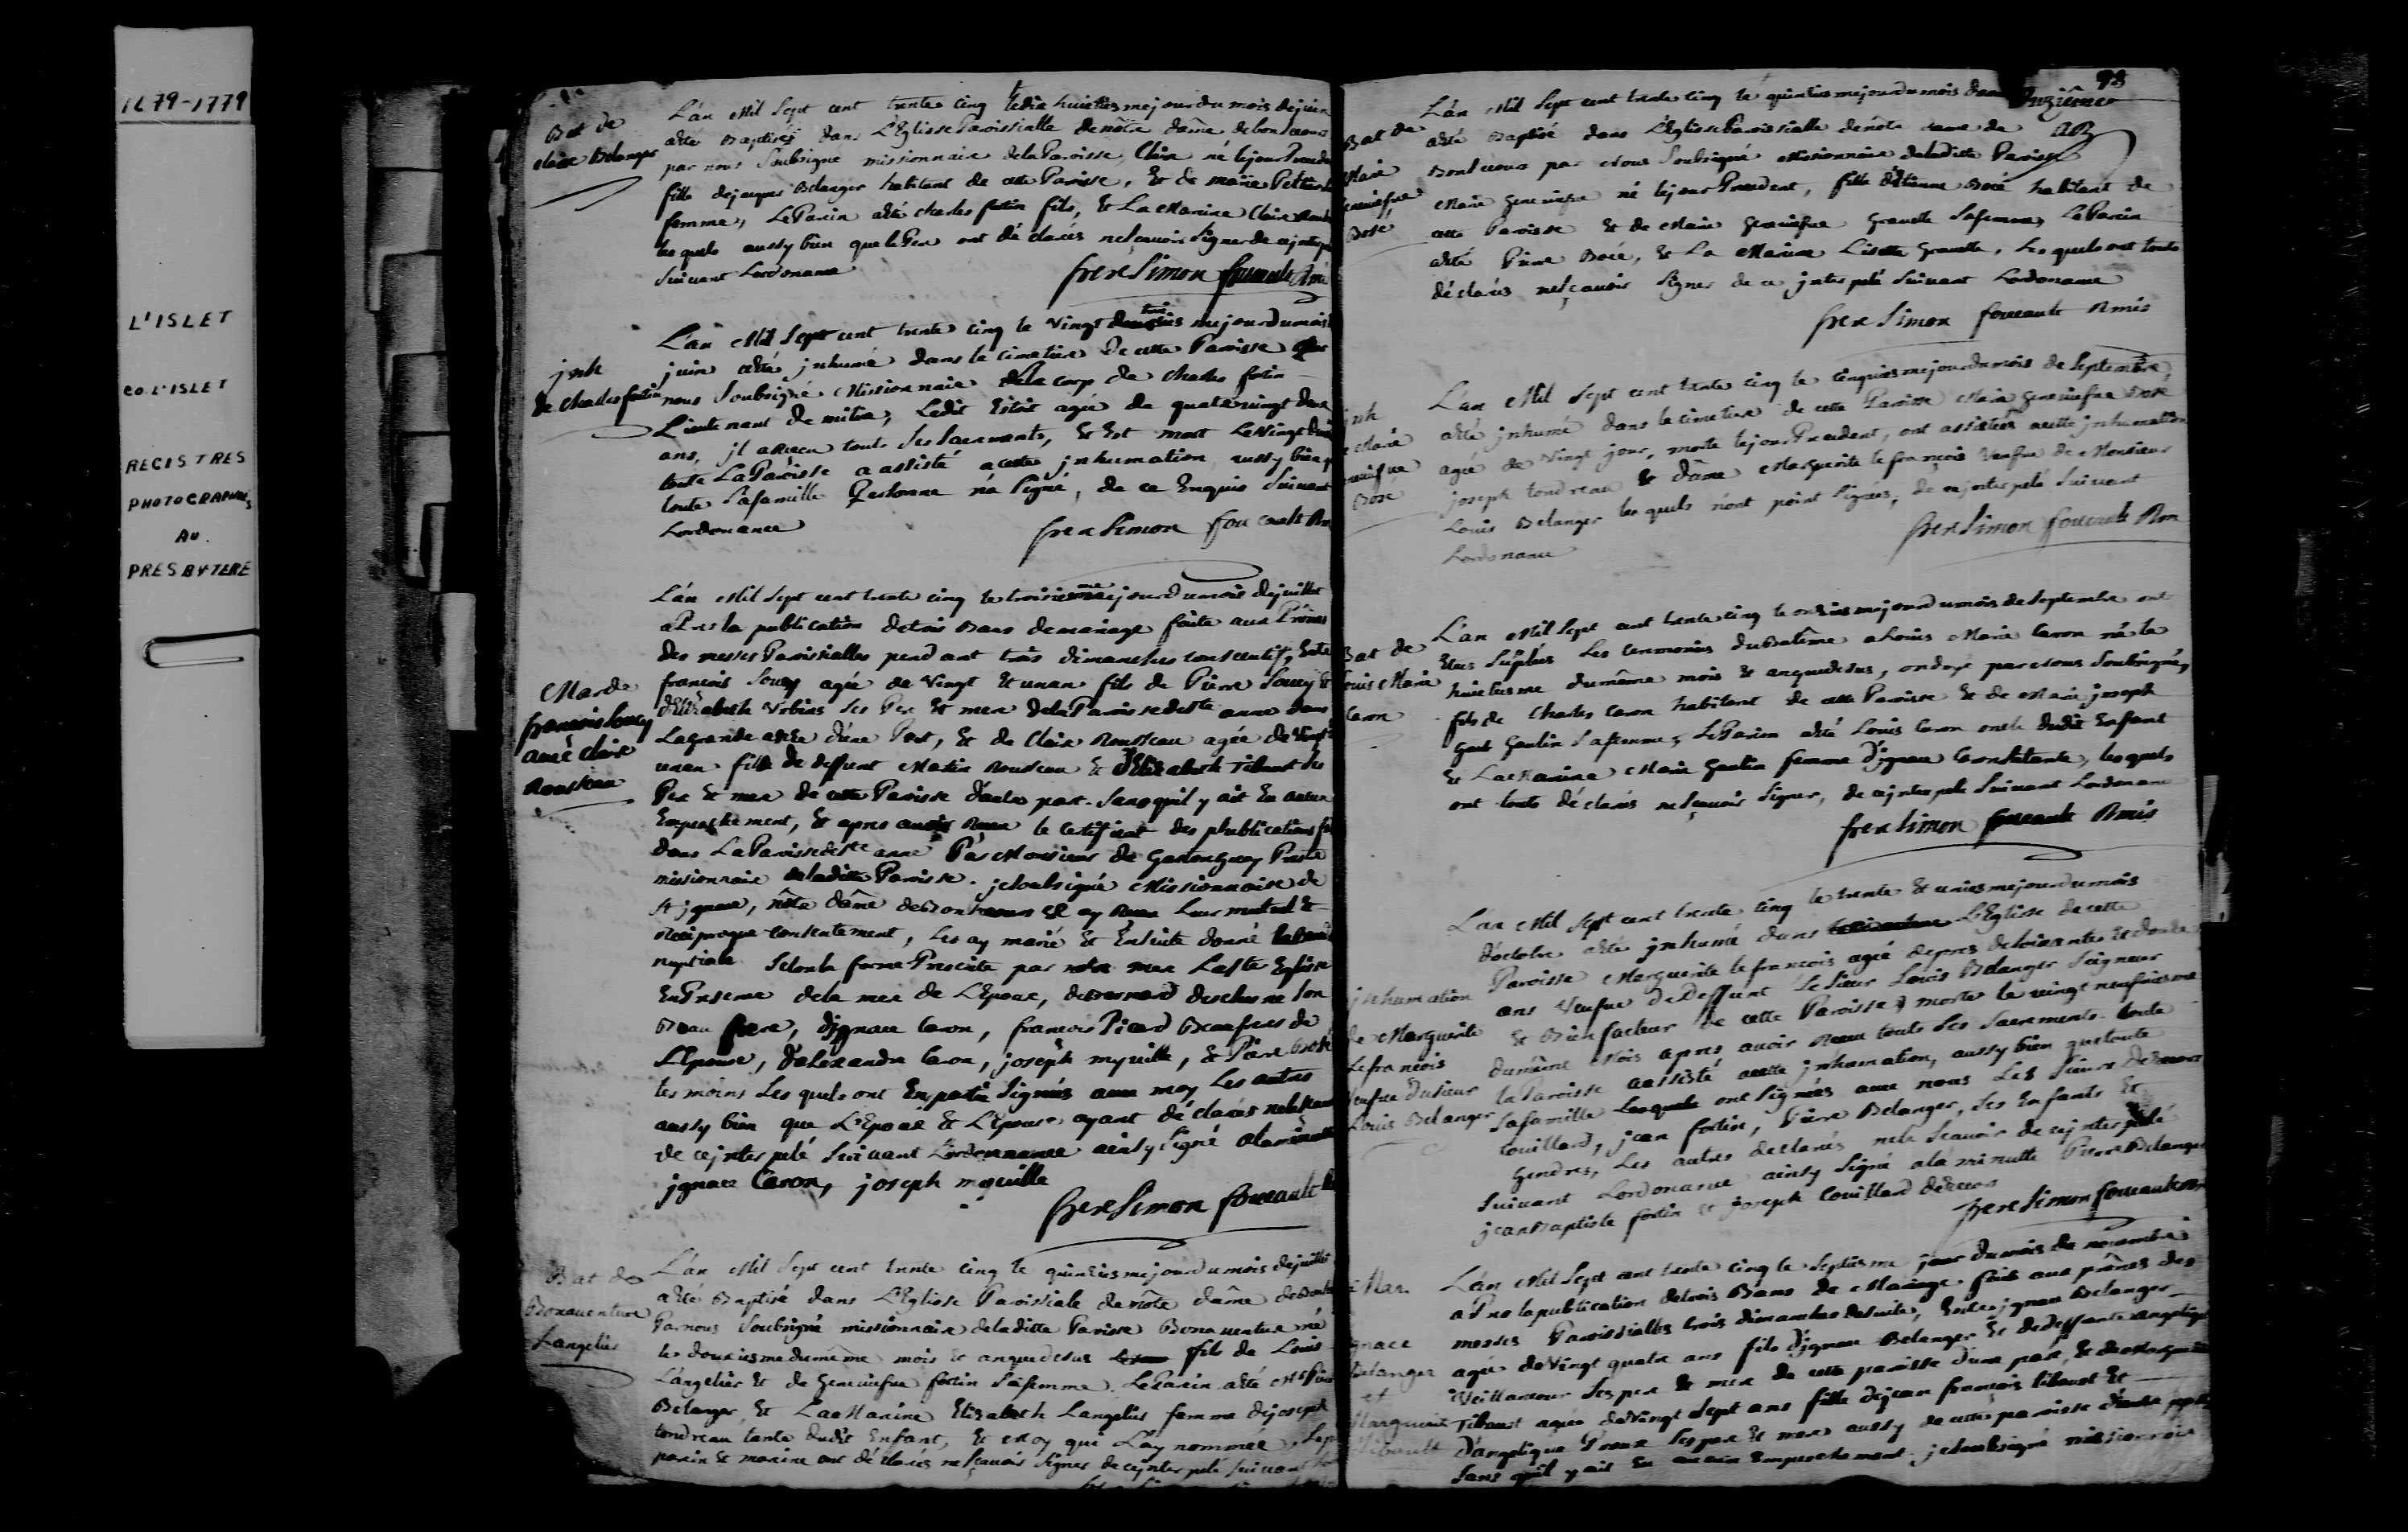 1679-1779
L'ISLET
CO. L'ISLET
REGISTRES
PHOTOGRAPHIÉS
AU
PRESBYTERE
Bat de
claire Belanger
L'an Mil Sept cent trente cinq le dix huitiesme jour du mois de juin
a été Baptisée dans L'Eglise Paroissialle de nôtre dâme de bonsecour
par nous Soubsigné missionnaire de la Paroisse, Claire né le jour
fille de jacques Belanger habitant de cette Paroisse, Et de marie
femme, Le Parin a été charles fortin fils, Et La Marine Claire
les quels aussy bien que le Pere ont déclarés ne sçavoir Signer de ce
Suivant Lordonance
frere Simon foucault
jnh
de charles fortin
L'an Mil Sept cent trente cinq le vingt trois jour du mois
juin a été jnhumé dans le cimetiere de cette Paroisse par
nous Soubsigné Missionnaire le corp de charles fortin
Lieutenant de milice, Ledit Estoit agée de quatrevingt
ans, jl a receu touts ses Sacrements, Et Est mort Le vingt
toute La Paroisse a assisté a cette jnhumation aussy bien
toute Sa famille Personne n'a Signé, de ce Enquis Suivant
Lordonance
frere Simon foucault
Mar de
francois Soucy
avec claire
Rousseau
L'an Mil Sept cent trente cinq le troisiesme jour du mois de juillet
aPres la publication de trois Bans de mariage faite aux Prônes
des messes Paroissialles pendant trois dimanches consecutifs, Entre
francois Soucy agée de Vingt Et un an fils de Pierre Soucy Et
d'Elizabeth Ses Per Et mere de la Paroisse de Ste anne dans
La grande d'une Part, Et de Claire Rousseau agée de vingt
un an fille de deffunt Martin Rousseau Et d'Elizabeth Tibaut Ses
Per Et mere de cette Paroisse d'autre part. Sans quil y ait Eu aucun
Empeschement, Et apres avoir Receu le certificat des publications
dans La Paroisse de Ste anne Par Monsieur de Gastonguay Prestre
missionnaire de laditte Paroisse. je Soubsigné Missionnaire de
St jgnace, nôtre dâme de Bonsecours ay Receu Leur mutuel Et
Reciproque consentement, Les ay marié Et Ensuite donné
nuptiale Selon la forme Prescrite par notre mere La Ste Eglise
En Presence de la mere de L'Epoux, de Bernard deschesne Son
Beau frere, d'jgnace Caron, francois Picard Beaufrere de
L'Epouse, d'alexandre Caron, joseph myville, Et Piere Boré
tesmoins Les quels ont En partie Signés avec moy Les autres
aussy bien que L'Epoux Et L'Epouse, ayant déclarés
de ce jnterpelé Suivant Lordonnance ainsy Signé a la minutte
jgnace Caron, joseph myville
frere Simon foucault
Bat de
Bonaventure
Langelier
L'an Mil Sept cent trente cinq le quinziesme jour du mois de juillet
a été Baptisé dans L'Eglise Paroissiale de nôtre dâme
Par nous Soubsigné missionnaire de laditte Paroisse Bonaventure né
le douziesme du même mois Et an que desus fils de Louis
Langelier Et de Genevieve fortin Sa femme. Le Parin a été
Belanger Et La Marine Elizabeth Langelier femme de joseph
tondreau tante dudit Enfant, Et Moy qui L'ay nommée,
parin Et marine ont déclarés ne sçavoir Signer de ce jnterpelé Suivant
93
Onziême
Bat de
Marie
Boré
L'an Mil Sept cent trente cinq le quinziesme jour du mois
a été Baptisé dans L'Eglise Paroissialle de nôtre dame de
Bonsecours par Nous Soubsigné Missionnaire de laditte Paroisse
Marie genevieve né le jour Precedent, fille d'Etienne Boré habitant de
cette Paroisse Et de Marie genevieve Gravelle Sa femme, Le Parin
a été Piere Boré, Et La Marine Lisette Gravelle, Les quels ont touts
déclarés ne sçavoir Signer de ce jnterpelé Suivant Lordonance
frere Simon foucault Rmis
jnh
Marie
Boré
L'an Mil Sept cent trente cinq le cinquiesme jour du mois de Septembre
a été jnhumé dans le cimetiere de cette Paroisse Marie genevieve Boré
agée de vingt jour, morte le jour Precedent, ont assistées a cette jnhumation
joseph tondreau Et dâme Marguerite le françois veufve de Monsieur
Louis Belanger les quels n'ont point Signés, de ce jnterpelé Suivant
Lordonance
frere Simon foucault
Bat de
Louis Marie
Caron
L'an Mil Sept cent trente cinq le onziesme jour du mois de Septembre ont
Etes Supléés Les ceremonies du Batême a Louis Marie Caron né le
huictiesme du même mois Et an que desus, ondoyé par Nous Soubsigné,
fils de Charles Caron habitant de cette Paroisse Et de Marie joseph
Gaulin Sa femme, Le Parin a été Louis Caron oncle dudit Enfant
Et La Marine Marie Gaulin femme d'jgnace, les quels
ont touts déclarés ne sçavoir Signer, de ce jnterpelé Suivant Lordonance
frere Simon foucault Rmis
jnhumation
de Marguerite
Lefrancois
veufve du Sieur
Louis Belanger
L'an Mil Sept cent trente cinq le trente Et uniesme jour du mois
d'octobre a été jnhumé dans L'Eglise de cette
Paroisse Marguerite le francois agée de pres de Soixante Et douze
ans Veufve de Deffunt Le Sieur Louis Belanger Seigneur
Et Bien facteur de cette Paroisse morte le vingt neufviesme
du même Mois apres avoir Receu touts Ses Sacrements toute
la Paroisse a assisté a cette jnhumation, aussy bien que toute
Sa famille ont Signés avec nous Les Sieurs
Couillard, jean fortin, Piere Belanger, Ses Enfants Et
Gendres, Les autres declarés ne le Scavoir de ce jnterpelé
Suivant Lordonance ainsy Signé a la minutte Pierre Belanger
jean Baptiste fortin Et joseph Couillard
frere Simon foucault
Mar.
Belanger
et
L'an Mil Sept cent trente cinq le Septiesme jour du mois de novembre
aPres la publication de trois Bans de Mariage faite aux prônes des
messes Paroissialles trois dimanches de Suite, Entre jgnace Belanger
agée de Vingt quatre ans fils d'jgnace Belanger Et de deffunte angelique
Ses per Et mere de cette paroisse d'une part, Et de Marguerite
Tibaut agée de Vingt Sept ans fille de jean francois tibaut Et
d'angelique Proux Ses per Et mere aussy de cette paroisse d'autre part
Sans quil y ait Eu aucun Empeschement. je Soubsigné missionnaire